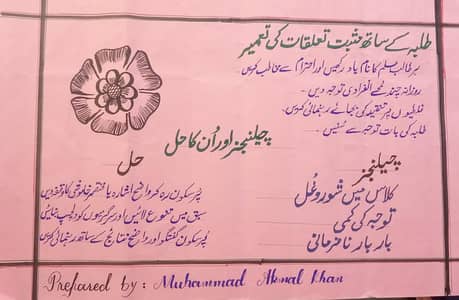 طلبہ کے ساتھ مثبت تعلقات کی تعمیر
ہر طالب علم کا نام یاد رکھیں اور احترام سے مخاطب کریں
روزانہ چند لمحے انفرادی توجہ دیں -
غلطیوں پر تنقید کی بجائے رہنمائی کریں -
طلبہ کی بات توجہ سے سنیں -
چیلنجز اور اُن کا حل
چیلنجز
کلاس میں شوروغل
توجہ کی کمی
بار بار نافرمانی
حل
پُرسکون رہ کر واضح اشارہ یا مختصر خاموشی کا وقفہ دیں
سبق میں تنوع لائیں اور سرگرمیوں کو دلچسپ بنائیں
پُرسکون گفتگو اور واضح نتائج کے ساتھ رہنمائی کریں
Prepared by : Muhammad Akmal Khan